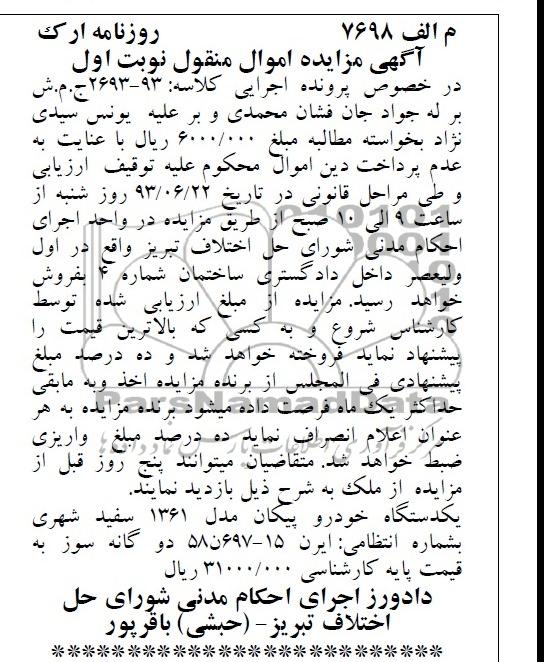 م الف ۷۶۹۸ روزنامه ارک
آگهی مزایده اموال منقول نوبت اول
در خصوص پرونده اجرایی کلاسه: ۹۳-۲۶۹۳ج.م.ش
بر له جواد جان فشان محمدی و بر علیه یونس سیدی
نژاد بخواسته مطالبه مبلغ ۶۰۰۰/۰۰۰ ریال با عنایت به
عدم پرداخت دین اموال محکوم علیه توقیف ارزیابی
و طی مراحل قانونی در تاریخ ۹۳/۰۶/۲۲ روز شنبه از
ساعت ۹ الی ۱۰ صبح از طریق مزایده در واحد اجرای
احکام مدنی شورای حل اختلاف تبریز واقع در اول
ولیعصر داخل دادگستری ساختمان شماره ۴ بفروش
خواهد رسید. مزایده از مبلغ ارزیابی شده توسط
کارشناس شروع و به کسی که بالاترین قیمت را
پیشنهاد نماید فروخته خواهد شد و ده درصد مبلغ
پیشنهادی فی المجلس از برنده مزایده اخذ وبه مابقی
حداکثر یک ماه فرصت داده میشود برنده مزایده به هر
عنوان اعلام انصراف نماید ده درصد مبلغ واریزی
ضبط خواهد شد. متقاضیان میتوانند پنج روز قبل از
مزایده از ملک به شرح ذیل بازدید نمایند.
یکدستگاه خودرو پیکان مدل ۱۳۶۱ سفید شهری
بشماره انتظامی: ایرن ۱۵-۶۹۷ن۵۸ دو گانه سوز به
قیمت پایه کارشناسی ۳۱۰۰۰/۰۰۰ ریال
دادورز اجرای احکام مدنی شورای حل
اختلاف تبریز- (حبشی) باقرپور
**************************
ParsNamadData